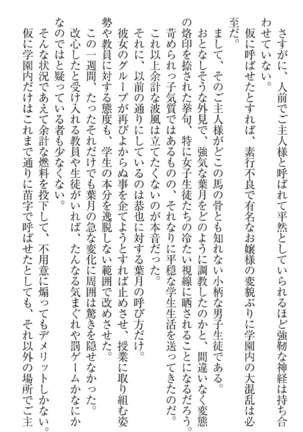 さすがに、人前でご主人様と呼ばれて平然としていられるほど強靭な神経は持ち合
わせていない。
仮に呼ばせたとすれば、素行不良で有名なお嬢様の変貌ぶりに学園内の大混乱は必
至だ。
まして、そのご主人様がどこの馬の骨とも知れない小柄な男子生徒である。
おとなしそうな外見で、強気な葉月をどのように調教したのかと、間違いなく変態
の烙印を捺された挙句、特に女子生徒たちの冷たい視線に晒されることになるだろう。
苛められっ子気質ではあるものの、それなりに平穏な学生生活を送ってきたのだ。
これ以上余計な波風は立てたくないのが本音だった。
それに、以前の通りにしているのは恭也に対する葉月の呼び方だけ。
彼女のグループが再びよからぬ事を企てようとすれば止めさせ、授業に取り組む姿
勢や教員に対する態度も、学生の本分を逸脱しない範囲で改めさせた。
この一週間、たったそれだけでも葉月の急な変化に周囲は驚きを隠せなかった。
改心したと受け入れる教員や生徒がいれば、たんなる気まぐれや罰ゲームかなにか
なのではと疑っている者も少なくない。
そんな状況であえて余計な燃料を投下して、不用意に煽ってもデメリットしかない。
仮に学園内だけはこれまで通りに苗字で呼ばせたとしても、それ以外の場所でご主